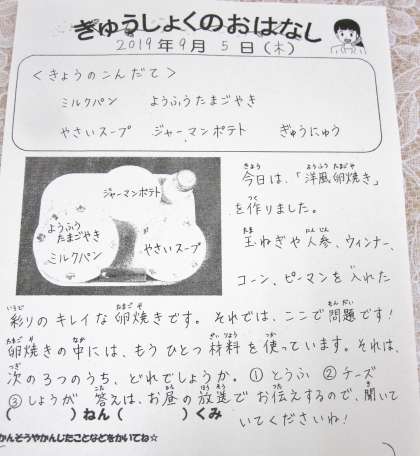 ぎゅうしょくのおはなし
2019年9月5日(木)
<きょうのこんだて>
ミルクパン ようふうたまごやき
やさいスープ ジャーマンポテト ぎゅうにゅう
ジャーマンポテト
ようふう
たまごやき
やさいスープ
ミルクパン
今日は、「洋風卵焼き」
を作りました。
玉ねぎや人参、ウィンナー、
コーン、ピーマンを入れた
彩りのキレイな卵焼きです。それでは、ここで問題です!
卵焼きの中には、もうひとつ材料を使っています。それは、
次の3つのうち、どれでしょうか。①とうふ ②チーズ
③しょうが 答えは、お昼の放送でお伝えするので、聞いて
いてくださいね!
( )ねん( )くみ
かんそうやかんじたことなどをかいてね☆